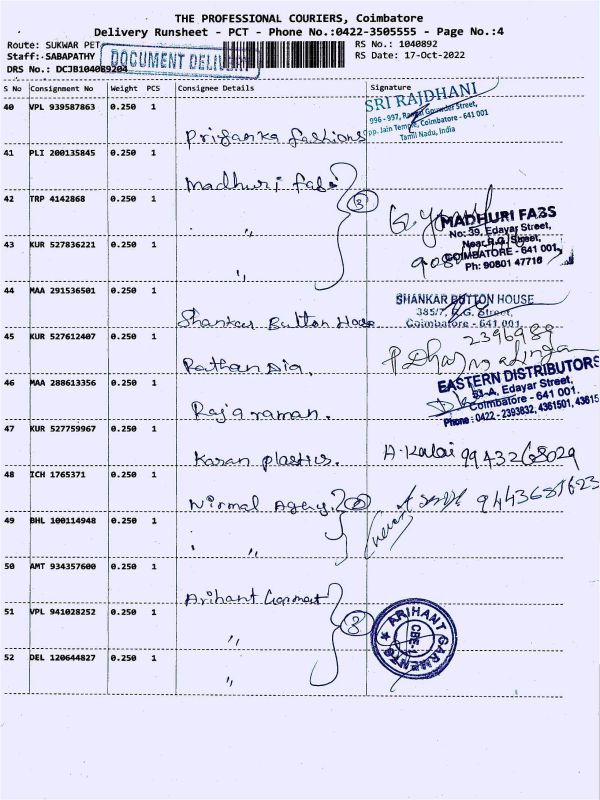 THE PROFESSIONAL COURIERS, Coimbatore
Delivery Runsheet - PCT - Phone No.:0422-3505555 - Page No.:4
Route: SUKWAR PET
RS No.: 1040892
Staff: SABAPATHY
DOCUMENT DELI
RS Date: 17-Oct-2022
DRS No.: DCJB104089204
S No Consignment No Weight PCS Consignee Details Signature
SRI RAJDHANI
996 - 997, Gounder Street,
Opp. Jain Temple, Coimbatore - 641 001
Tamil Nadu, India
40 VPL 939587863 0.250 1 Priyanka fashions
41 PLI 200135845 0.250 1 Madhuri Fabs
42 TRP 4142868 0.250 1 " 3
MADHURI FABS
No: 39, Edayar Street,
Near R.G. Street,
COIMBATORE - 641 001.
Ph: 90801 47716
43 KUR 527836221 0.250 1 "
44 MAA 291536501 0.250 1 Shankar Button House
SHANKAR BUTTON HOUSE
385/7, R.G. Street,
Coimbatore - 641 001
45 KUR 527612407 0.250 1 Rathan Dia.
2396989
46 MAA 288613356 0.250 1 Rajaraman.
EASTERN DISTRIBUTORS
51-A, Edayar Street,
Coimbatore - 641 001.
Phone : 0422 - 2393832, 4361501, 43615
47 KUR 527759967 0.250 1 Karan plastics. A. Kalai 9943268029
48 ICH 1765371 0.250 1 Nirmal Agery 2 9443681623
49 BHL 100114948 0.250 1 "
50 AMT 934357600 0.250 1 Arihant Garment
51 VPL 941028252 0.250 1 " 3
ARIHANT GARMENTS
CBE-1
52 DEL 120644827 0.250 1 "